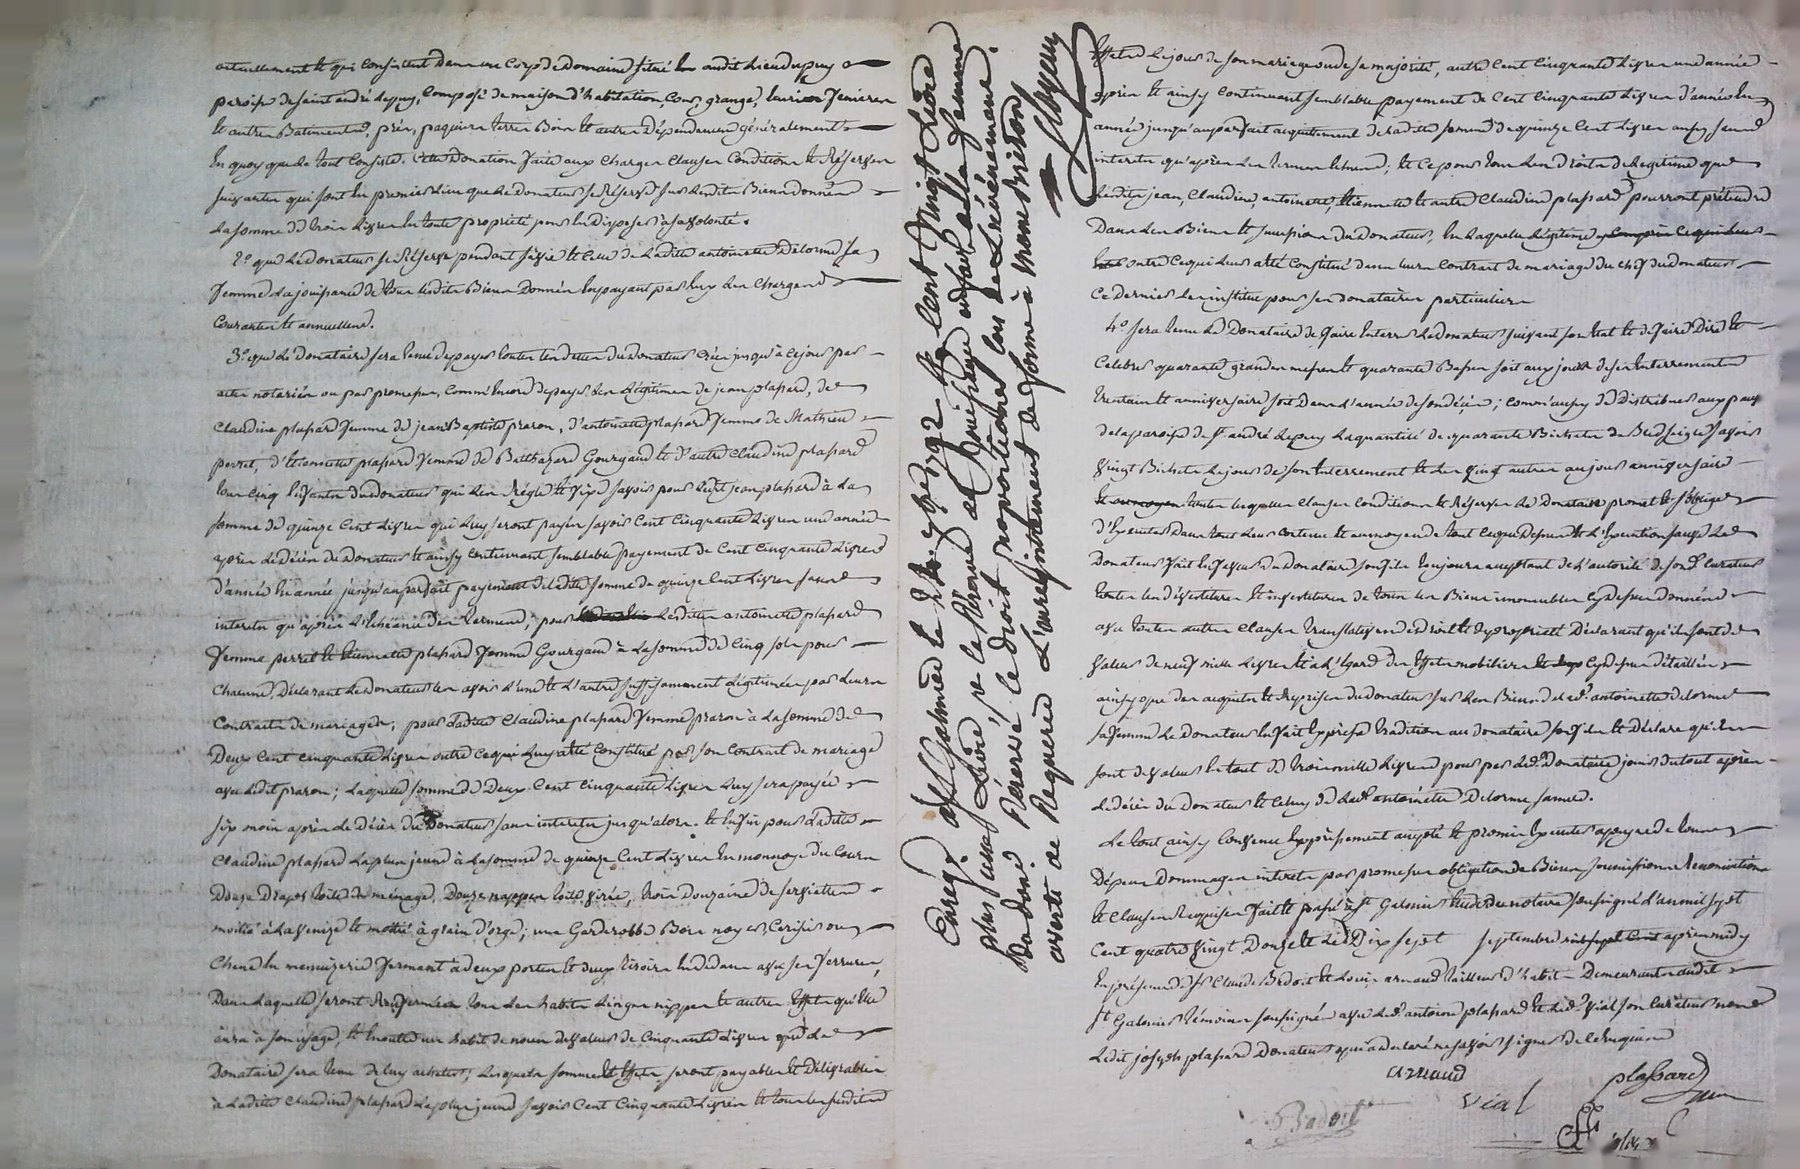 actuellement et qui consistent dans un corps de Domaine situé au dit lieu du puy
paroisse de saint andré le puy, composé de maison d'habitation, cour, grange, écuries fenieres
et autres Batiments, prés, paquiers terres Bois et autres dépendances généralement
en quoy que le tout consiste. Cette Donation faite aux charges clauses conditions et Réserves
suivantes qui sont en premier lieu que le donateur se Réserve sur lesdits Biens donnés
la somme de trois Livres en toute propriété pour en disposer à sa volonté.
2° que le donateur se Réserve pendant sa vie et celle de ladite antoinette Delorme sa
femme la jouissance de tous lesdits Biens Donnés en payant par luy les charges
courantes et annuelles.
3° que le Donataire sera tenu de payer toutes les dettes du donateur crées jusqu'à ce jour par
actes notariés ou par promesses, comm'encore de payer les légitimes de jean plassard, de
Claudine plassard femme de jean Baptiste praron, d'antoinette plassard femme de Mathieu
perret, d'étiennette plassard femme de Balthazard Gourgaud et d'autre Claudine plassard
tous cinq enfants du donateur qui les Régle et fixe savoir pour ledit jean plassard à la
somme de quinze cent Livres qui luy seront payés savoir cent cinquante Livres une année
après le décès du donateur et ainsy continuant semblable payement de cent cinquante Livres
d'année en année jusqu'au parfait payement de ladite somme de quinze cent Livres sans
interets qu'après l'échéance des termes; pour lesdites antoinette plassard
femme perret et étiennette plassard femme Gourgaud à la somme de cinq sols pour
chacune, Déclarant le donateur les avoir l'une et l'autre suffisamment légitimées par leurs
contrats de mariages; pour ladite Claudine plassard femme praron à la somme de
Deux cent cinquante Livres outre ce qui luy a été constitué par son contrat de mariage
avec ledit praron; laquelle somme de Deux cent cinquante Livres luy sera payée
six mois après le décès du Donateur sans interets jusqu'alors. et enfin pour ladite
Claudine plassard la plus jeune à la somme de quinze cent Livres en monnoye du cours
Douze Draps toile de ménage, Douze nappes toile, trois Douzaines de serviettes
moitié à la venize et moitié à grain d'orge; une Garderobbe Bois noyer, cerisier ou
chene en menuizerie fermant à deux portes et deux tiroirs au dedans avec ses ferrures,
Dans laquelle seront Renfermés tous les habits Linges nippes et autres Effets qu'elle
aura à son usage, et ensuite un habit de noces de valeur de cinquante Livres que le
Donataire sera tenu de luy acheter; lesquels sommes et Effets seront payables et délivrables
à ladite Claudine plassard la plus jeune savoir cent cinquante Livres et tous les susdits
Enreg. à St Galmier le 28. 7bre 1792. R. cent Vingt Livres
plus une Livre pr la Réserve de l'usufruit à la femme
du Donr. Réservé le droit proportionel lors de l'événement.
averti de Requerir L'enregistrement de forme à montbrison
Effets le jour de son mariage ou de sa majorité, autre cent cinquante Livres une année
après et ainsy continuant semblable payement de cent cinquante Livres d'année en
année jusqu'au parfait acquittement de ladite somme de quinze cent Livres aussy sans
interets qu'après les termes échus; et ce pour tous les droits de légitime que
lesdits jean, Claudine, antoinette, étiennette et autre Claudine plassard pourront prétendre
Dans les Biens et succession du Donateur, en laquelle légitime
outre ce qui leur a été constitué dans leurs contrats de mariage du chef du donateur
ce dernier les institue pour ses donataires particuliers
4° sera tenu le Donataire de faire enterrer le donateur suivant son état et de faire Dire et
celebrer quarante grandes messes et quarante Basses soit aux jours de ses Enterrement
trentain et anniversaire soit Dans l'année de son décès; comm'aussy de Distribuer aux pauvres
de la paroisse de St andré le puy la quantité de quarante Bichets de Bled seigle savoir
vingt Bichets le jour de son Enterrement et les vingt autres au jour anniversaire
toutes lesquelles clauses conditions et Réserves le Donataire promet et s'oblige
d'Executer Dans tout leur contenu et au moyen de tout ce qui Dessus et de l'Execution sauf le
Donateur fait en faveur du donataire son fils toujours acceptant de l'autorité de son curateur
toutes les dévestitures et investitures de tous les Biens immeubles cy dessus donnés
avec toutes autres clauses translatives de droit et de propriété Déclarant qu'ils sont de
valeur de neuf mille Livres et à l'égard des Effets mobiliers cy dessus détaillés
ainsy que des acquits et Reprises du donateur sur les Biens de lad. antoinette delorme
sa femme le Donateur en fait Expresse tradition au donataire son fils et Déclare qu'ils
sont de valeur en tout de trois mille Livres pour par led. Donataire jouir du tout après
le décès du Donateur et celuy de lad. antoinette Delorme sa mere.
Le tout ainsy convenu Expressement accepté et promis Executer à peyne de tous
Dépens Dommages interets par promesses obligation de Biens soumissions Renonciations
et clauses Requises fait et passé à St Galmier Etude du notaire soussigné L'an mil sept
cent quatre vingt Douze et le Dix sept septembre après midy
En présence de Sr Claude Badoit et Louis armand tailleur d'habit Demeurants audit
St Galmier témoins soussignés avec led. antoine plassard et led. Sr vial son curateur non
ledit joseph plassard Donateur qui a declaré ne savoir signer de ce enquis
armand
plassard
vial
Badoit